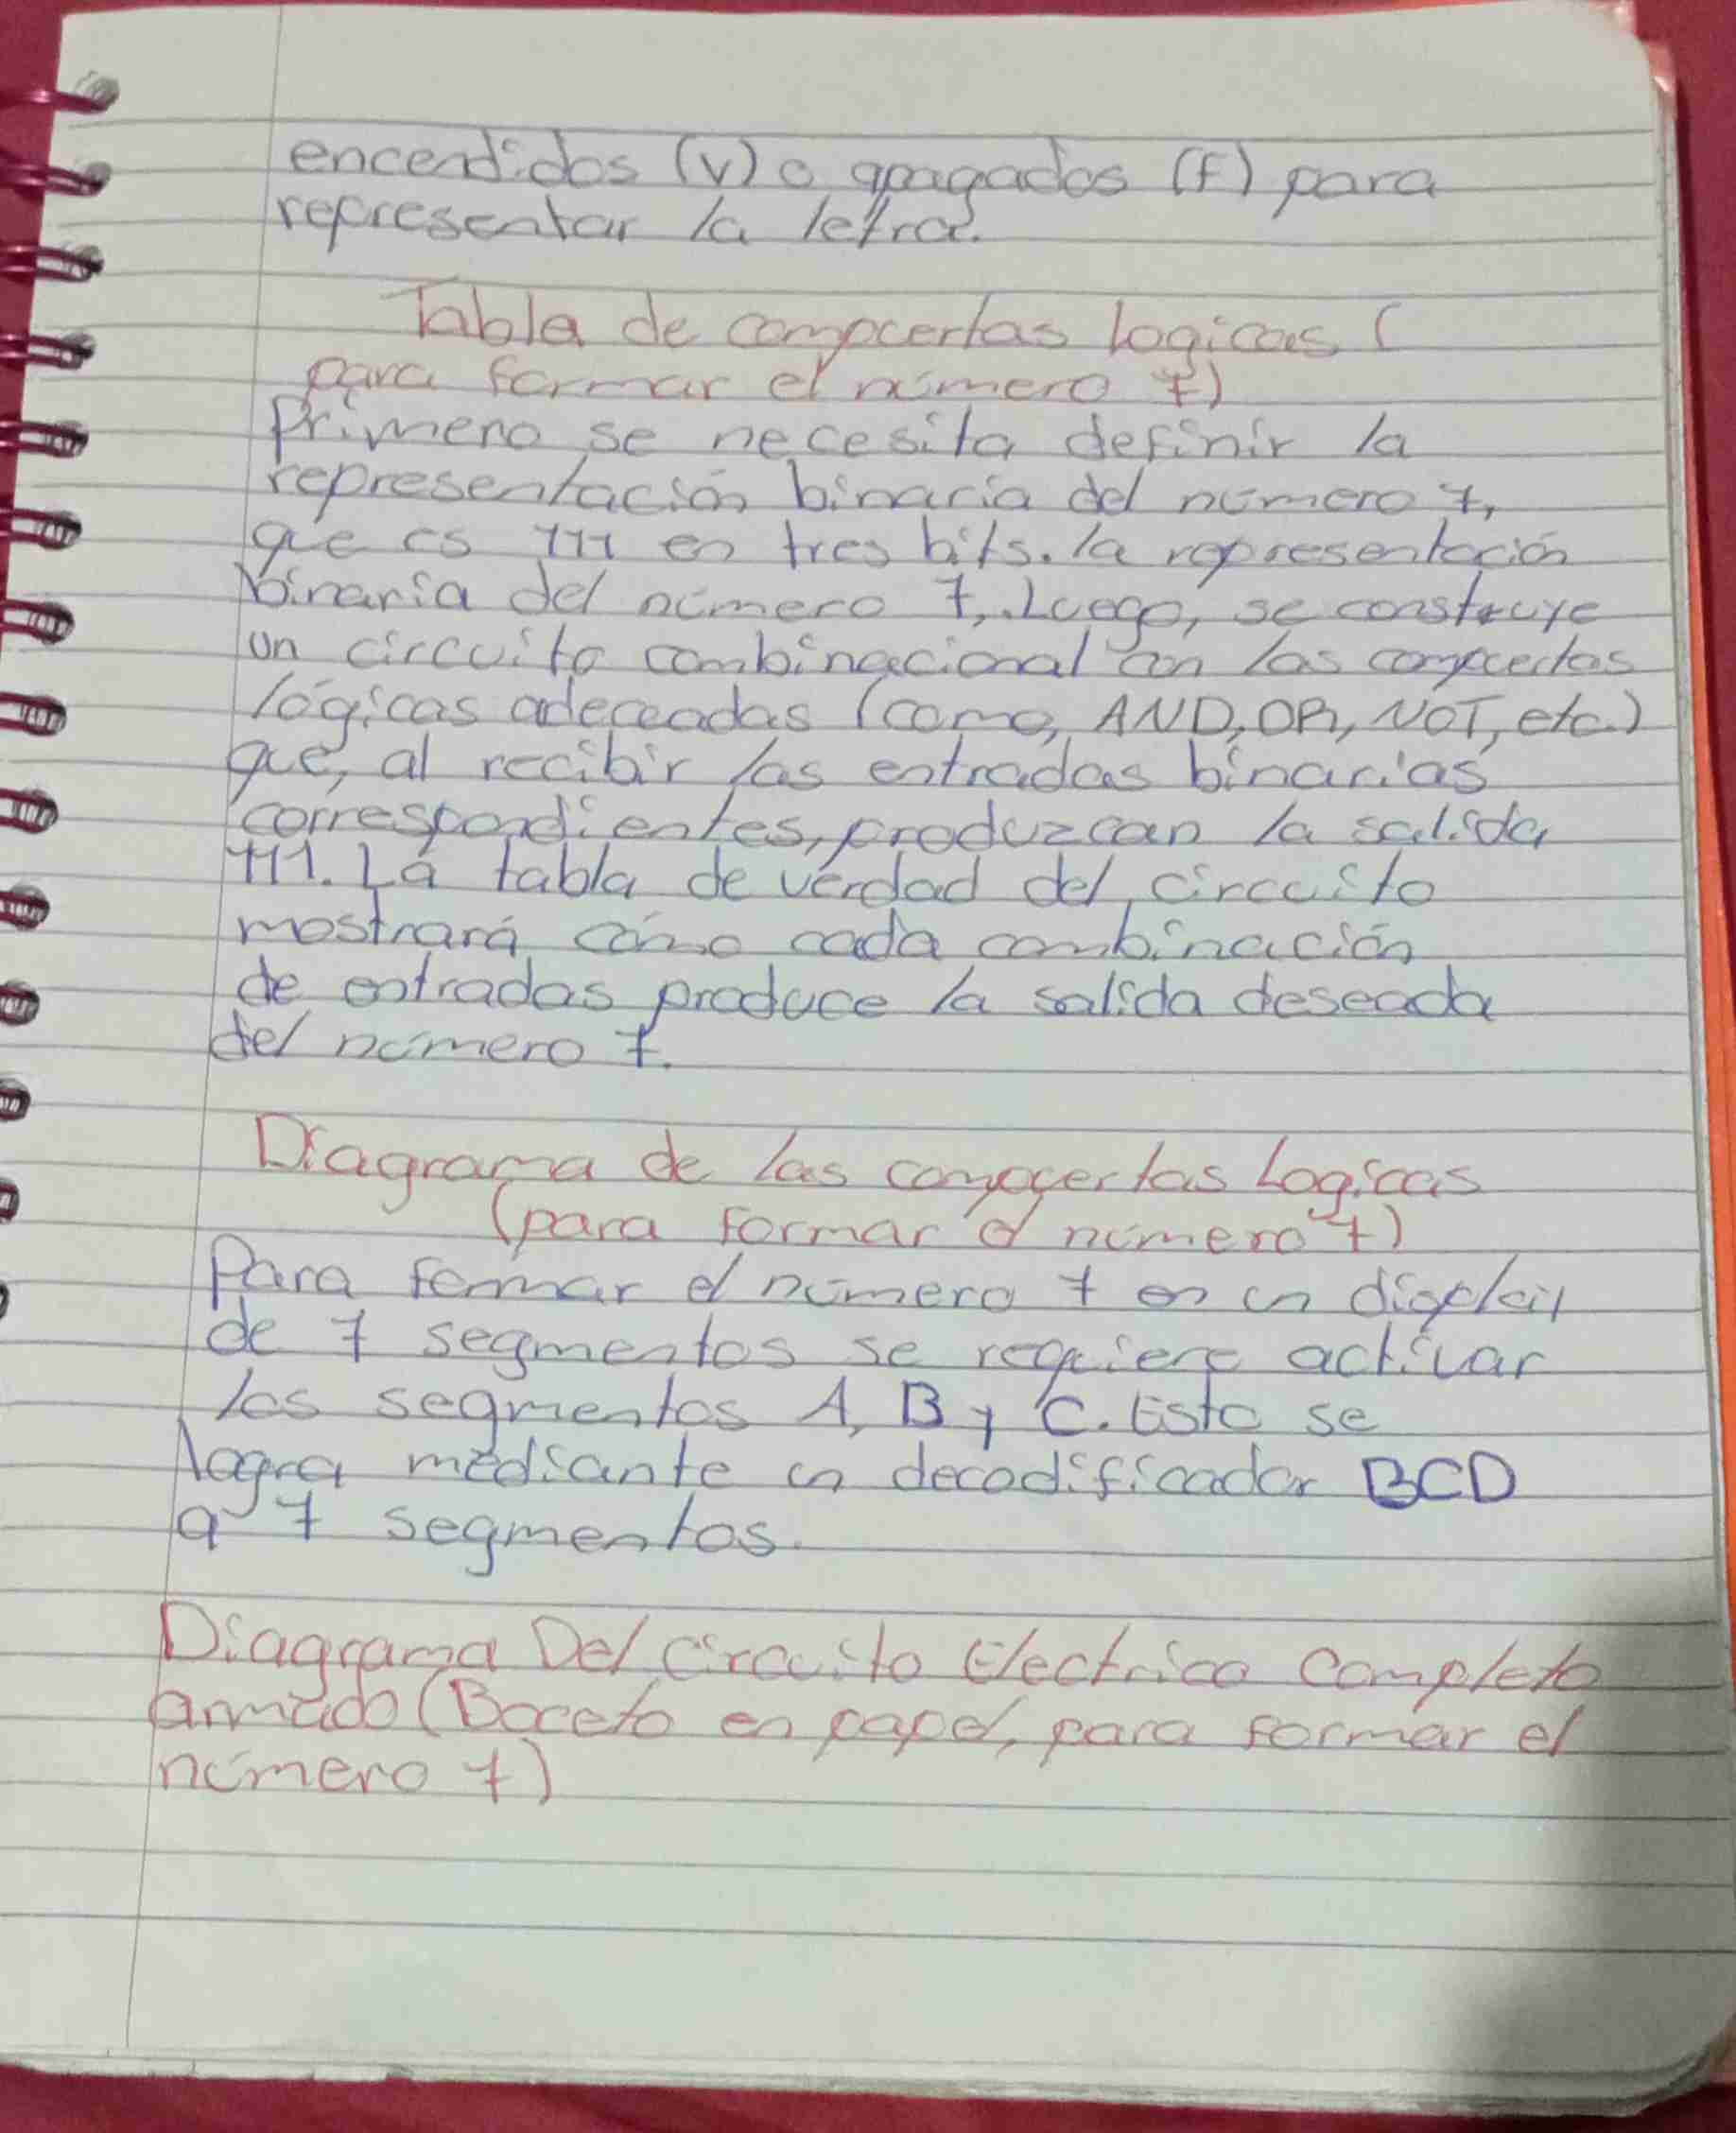 encendidos (v) o apagados (f) para
representar la letra.
Tabla de compcertas logicas (
para formar el número 7)
Primero se necesita definir la
representación binaria del número 7,
que es 111 en tres bits. la representación
binaria del número 7, Luego, se construye
un circuito combinacional con las compcertas
lógicas adecuadas (como, AND, OR, NOT, etc.)
que, al recibir las entradas binarias
correspondientes, produzcan la salida
111. La tabla de verdad del circuito
mostrará cómo cada combinación
de entradas produce la salida deseada
del número 7.
Diagrama de las compcertas Logicas
(para formar el número 7)
Para formar el número 7 en un display
de 7 segmentos se requiere activar
los segmentos A, B y C. Esto se
logra mediante un decodificador BCD
a 7 segmentos.
Diagrama Del circuito Electrico completo
armado (Boceto en papel, para formar el
número 7)